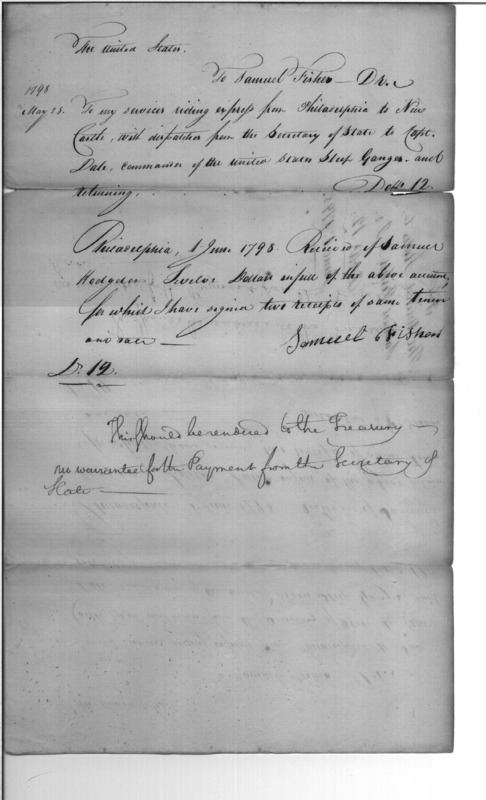 The United States.
To Samuel Fisher — Dr.
1798
May 25. To my services riding express from Philadelphia to New
Castle, with dispatches from the Secretary of State to Capt.
Dale, commander of the United States Sloop Ganges and
returning.
Dolls 12.
Philadelphia, 1 June 1798. Received of Samuel
Hodgdon, Twelve Dollars in full of the above account,
for which I have signed two receipts of same tenor
and date —
Samuel Fisher
D. 12.
This should be rendered to the Treasury —
no warrented for the Payment from the Secretary of
State —